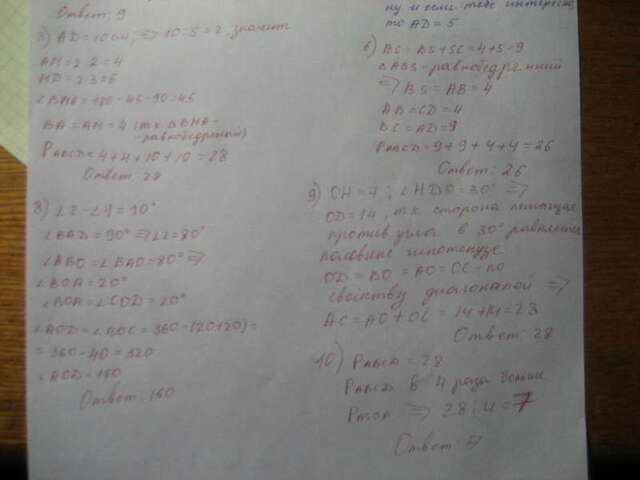 Ответ: 9
5) AD = 10 см; ⇒ 10:5 = 2. значит
AM = 2·2 = 4
MD = 2·3 = 6
∠BMA = 180 - 45 - 90 = 45
BA = AM = 4 (т.к. ΔBMA - равнобедренный)
PABCD = 4 + 4 + 10 + 10 = 28
Ответ: 28
8) ∠2 - ∠1 = 10°
∠BAD = 90° ⇒ ∠2 = 80°
∠ABO = ∠BAO = 80° ⇒
∠BOA = 20°
∠BOA = ∠COD = 20°
∠AOD = ∠BOC = 360 - (20+20) =
= 360 - 40 = 320
∠AOD = 160
Ответ: 160
ну и если тебе интересно,
то AD = 5
6) BC = BS + SC = 4 + 5 = 9
ΔABS - равнобедренный
⇒ BS = AB = 4
AB = CD = 4
BC = AD = 9
PABCD = 9 + 9 + 4 + 4 = 26
Ответ: 26
9) OH = 7; ∠HDO = 30° ⇒
OD = 14, т.к. сторона лежащая
против угла в 30° равняется
половине гипотенузе
OD = BO = AO = OC - по
свойству диагоналей ⇒
AC = AO + OC = 14 + 14 = 28
Ответ: 28
10) PABCD = 28
PABCD в 4 раза больше
⇒ 28 : 4 = 7
Ответ: 7